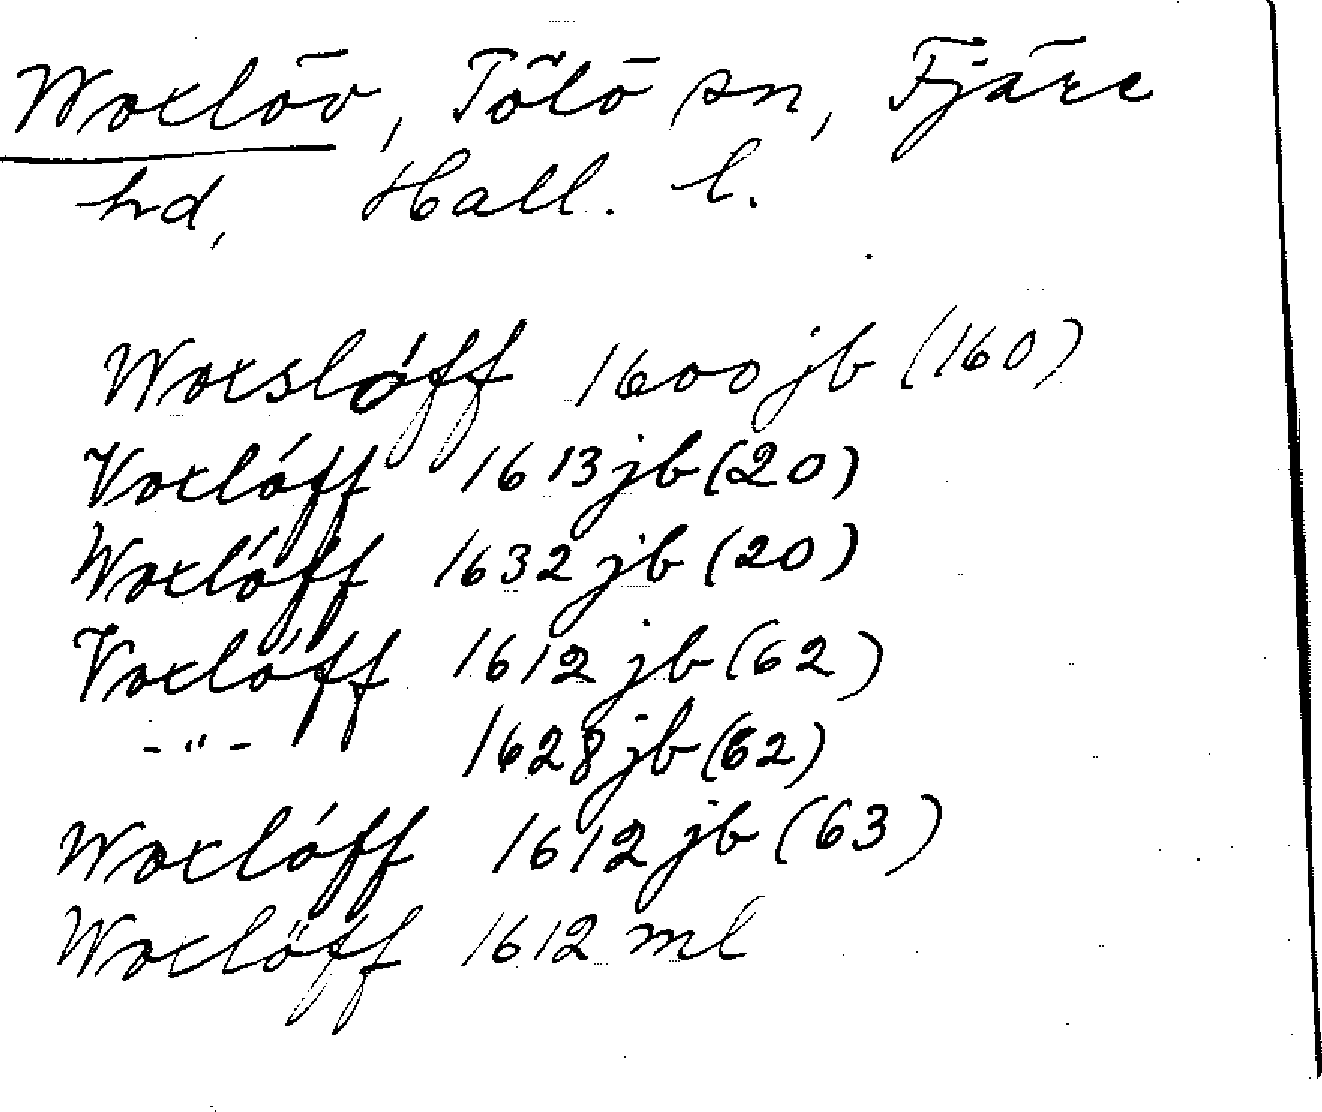 Woxlöv, Tölö sn, Fjäre
hd, Hall. l.
Woxslóff 1600 jb (160)
Voxlóff 1613 jb (20)
Woxlóff 1632 jb (20)
Voxlóff 1612 jb (62)
-"- 1628 jb (62)
Woxlóff 1612 jb (63)
Woxlöff 1612 ml